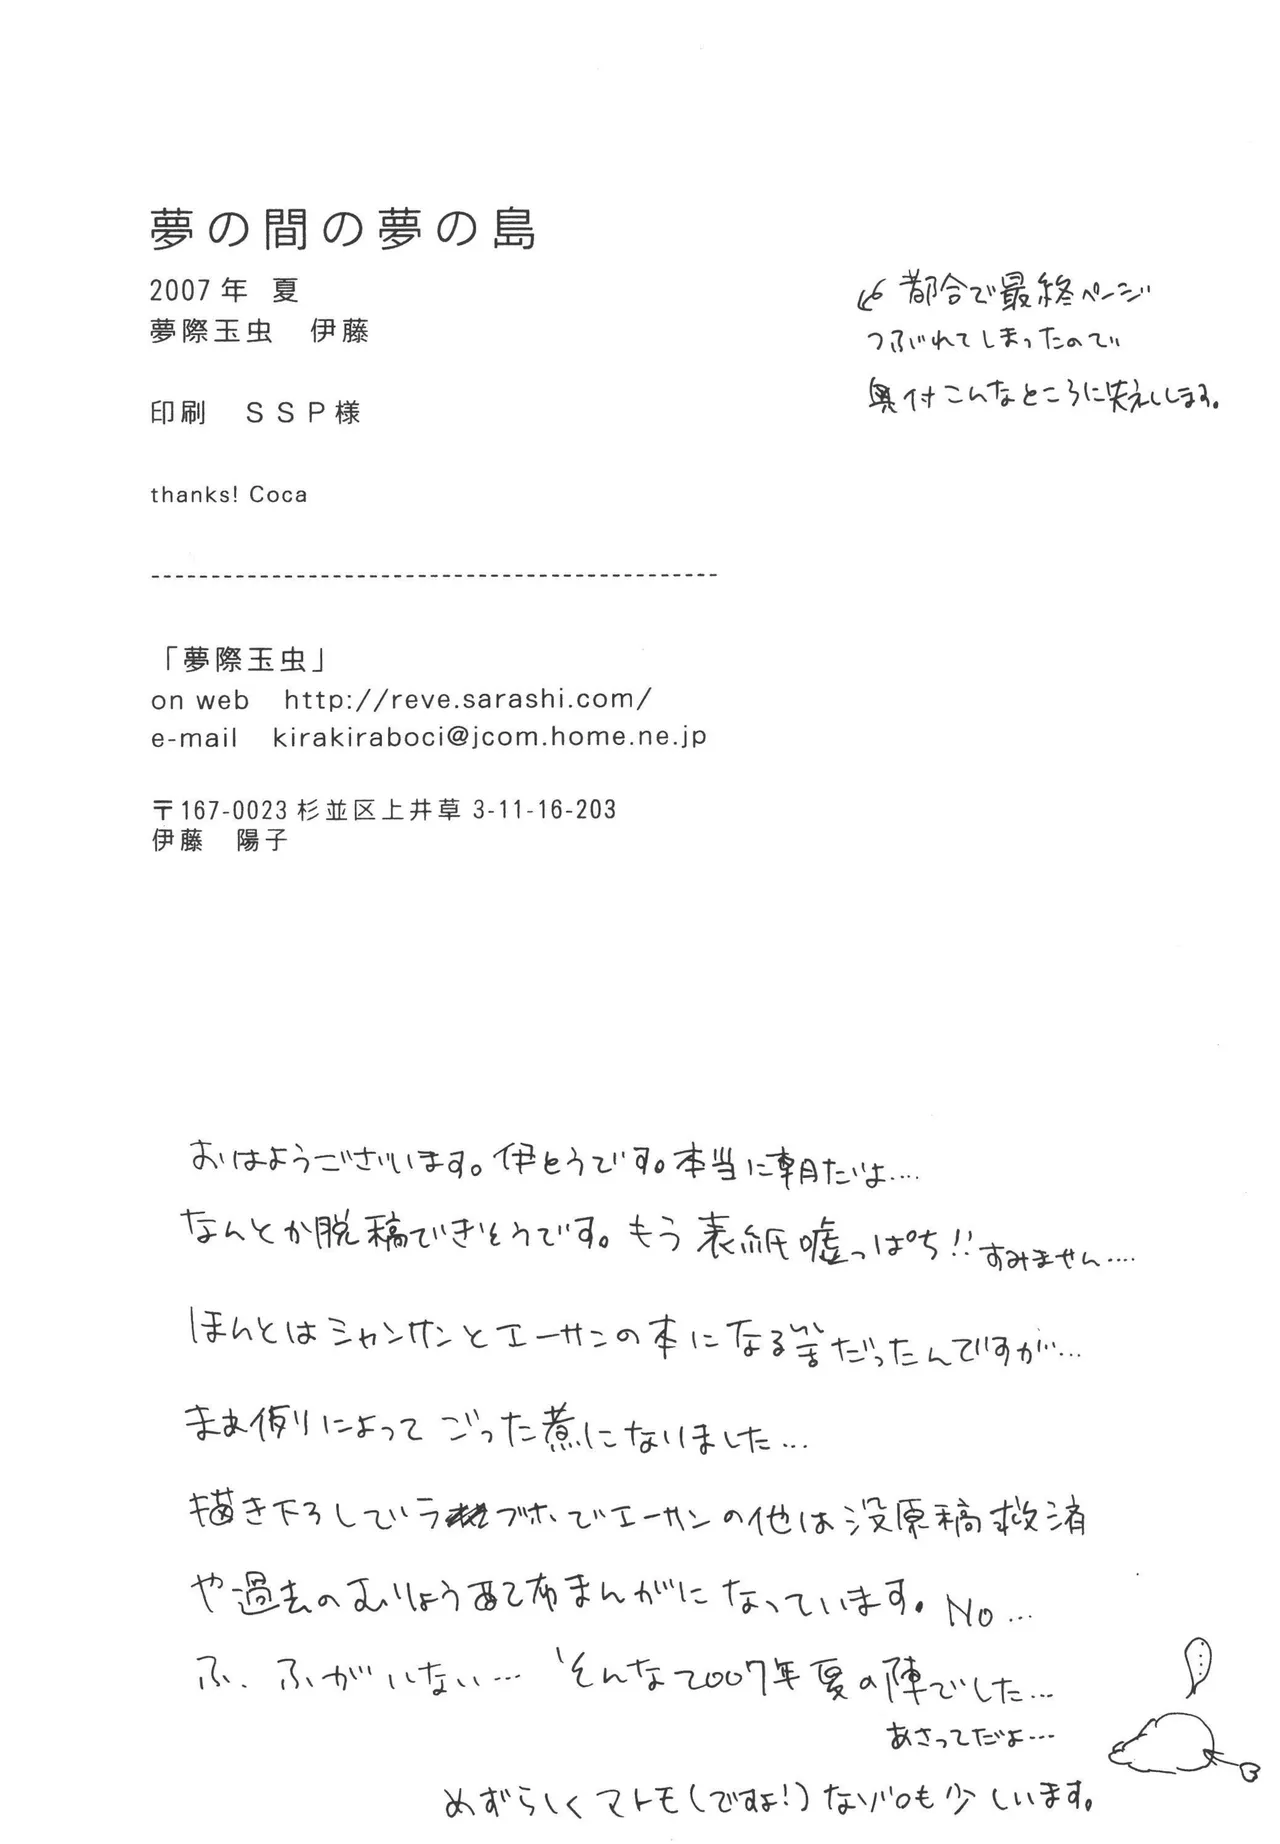 夢の間の夢の島
2007年 夏
夢際玉虫 伊藤
印刷 SSP様
thanks! Coca
都合で最終ページ
つぶれてしまったので
奥付こんなところに失礼します。
「夢際玉虫」
on web http://reve.sarashi.com/
e-mail kirakiraboci@jcom.home.ne.jp
〒167-0023 杉並区上井草 3-11-16-203
伊藤 陽子
おはようございます。伊とうです。本当に朝だよ....
なんとか脱稿できそうです。もう表紙嘘っぱち!! すみません....
ほんとはシャンサンとエーサンの本になる筈だったんですが...
まぁ例によってごった煮になりました...
描き下ろしていう ゾホでエーサンの他は没原稿救済
や過去のむりょう 布まんがになっています。No...
ふ、ふがいない... そんな2007年夏の陣でした...
あさってだよ...
めずらしくマトモ(ですよ!)なゾロも少しいます。